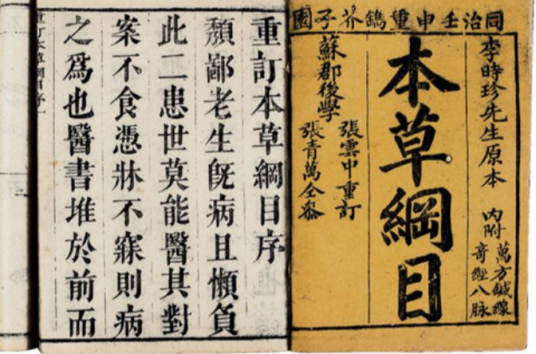 同治壬申重鐫芥子園
李時珍先生原本
內附
萬方鍼線
奇經八脉
本草綱目
蘇郡後學
張雲中重訂
張青萬仝參
重訂本草綱目序
頽鄙老生旣病且懶負
此二患世莫能醫其對
案不食憑牀不寐則病
之爲也醫書堆於前而
重訂本草綱目序一